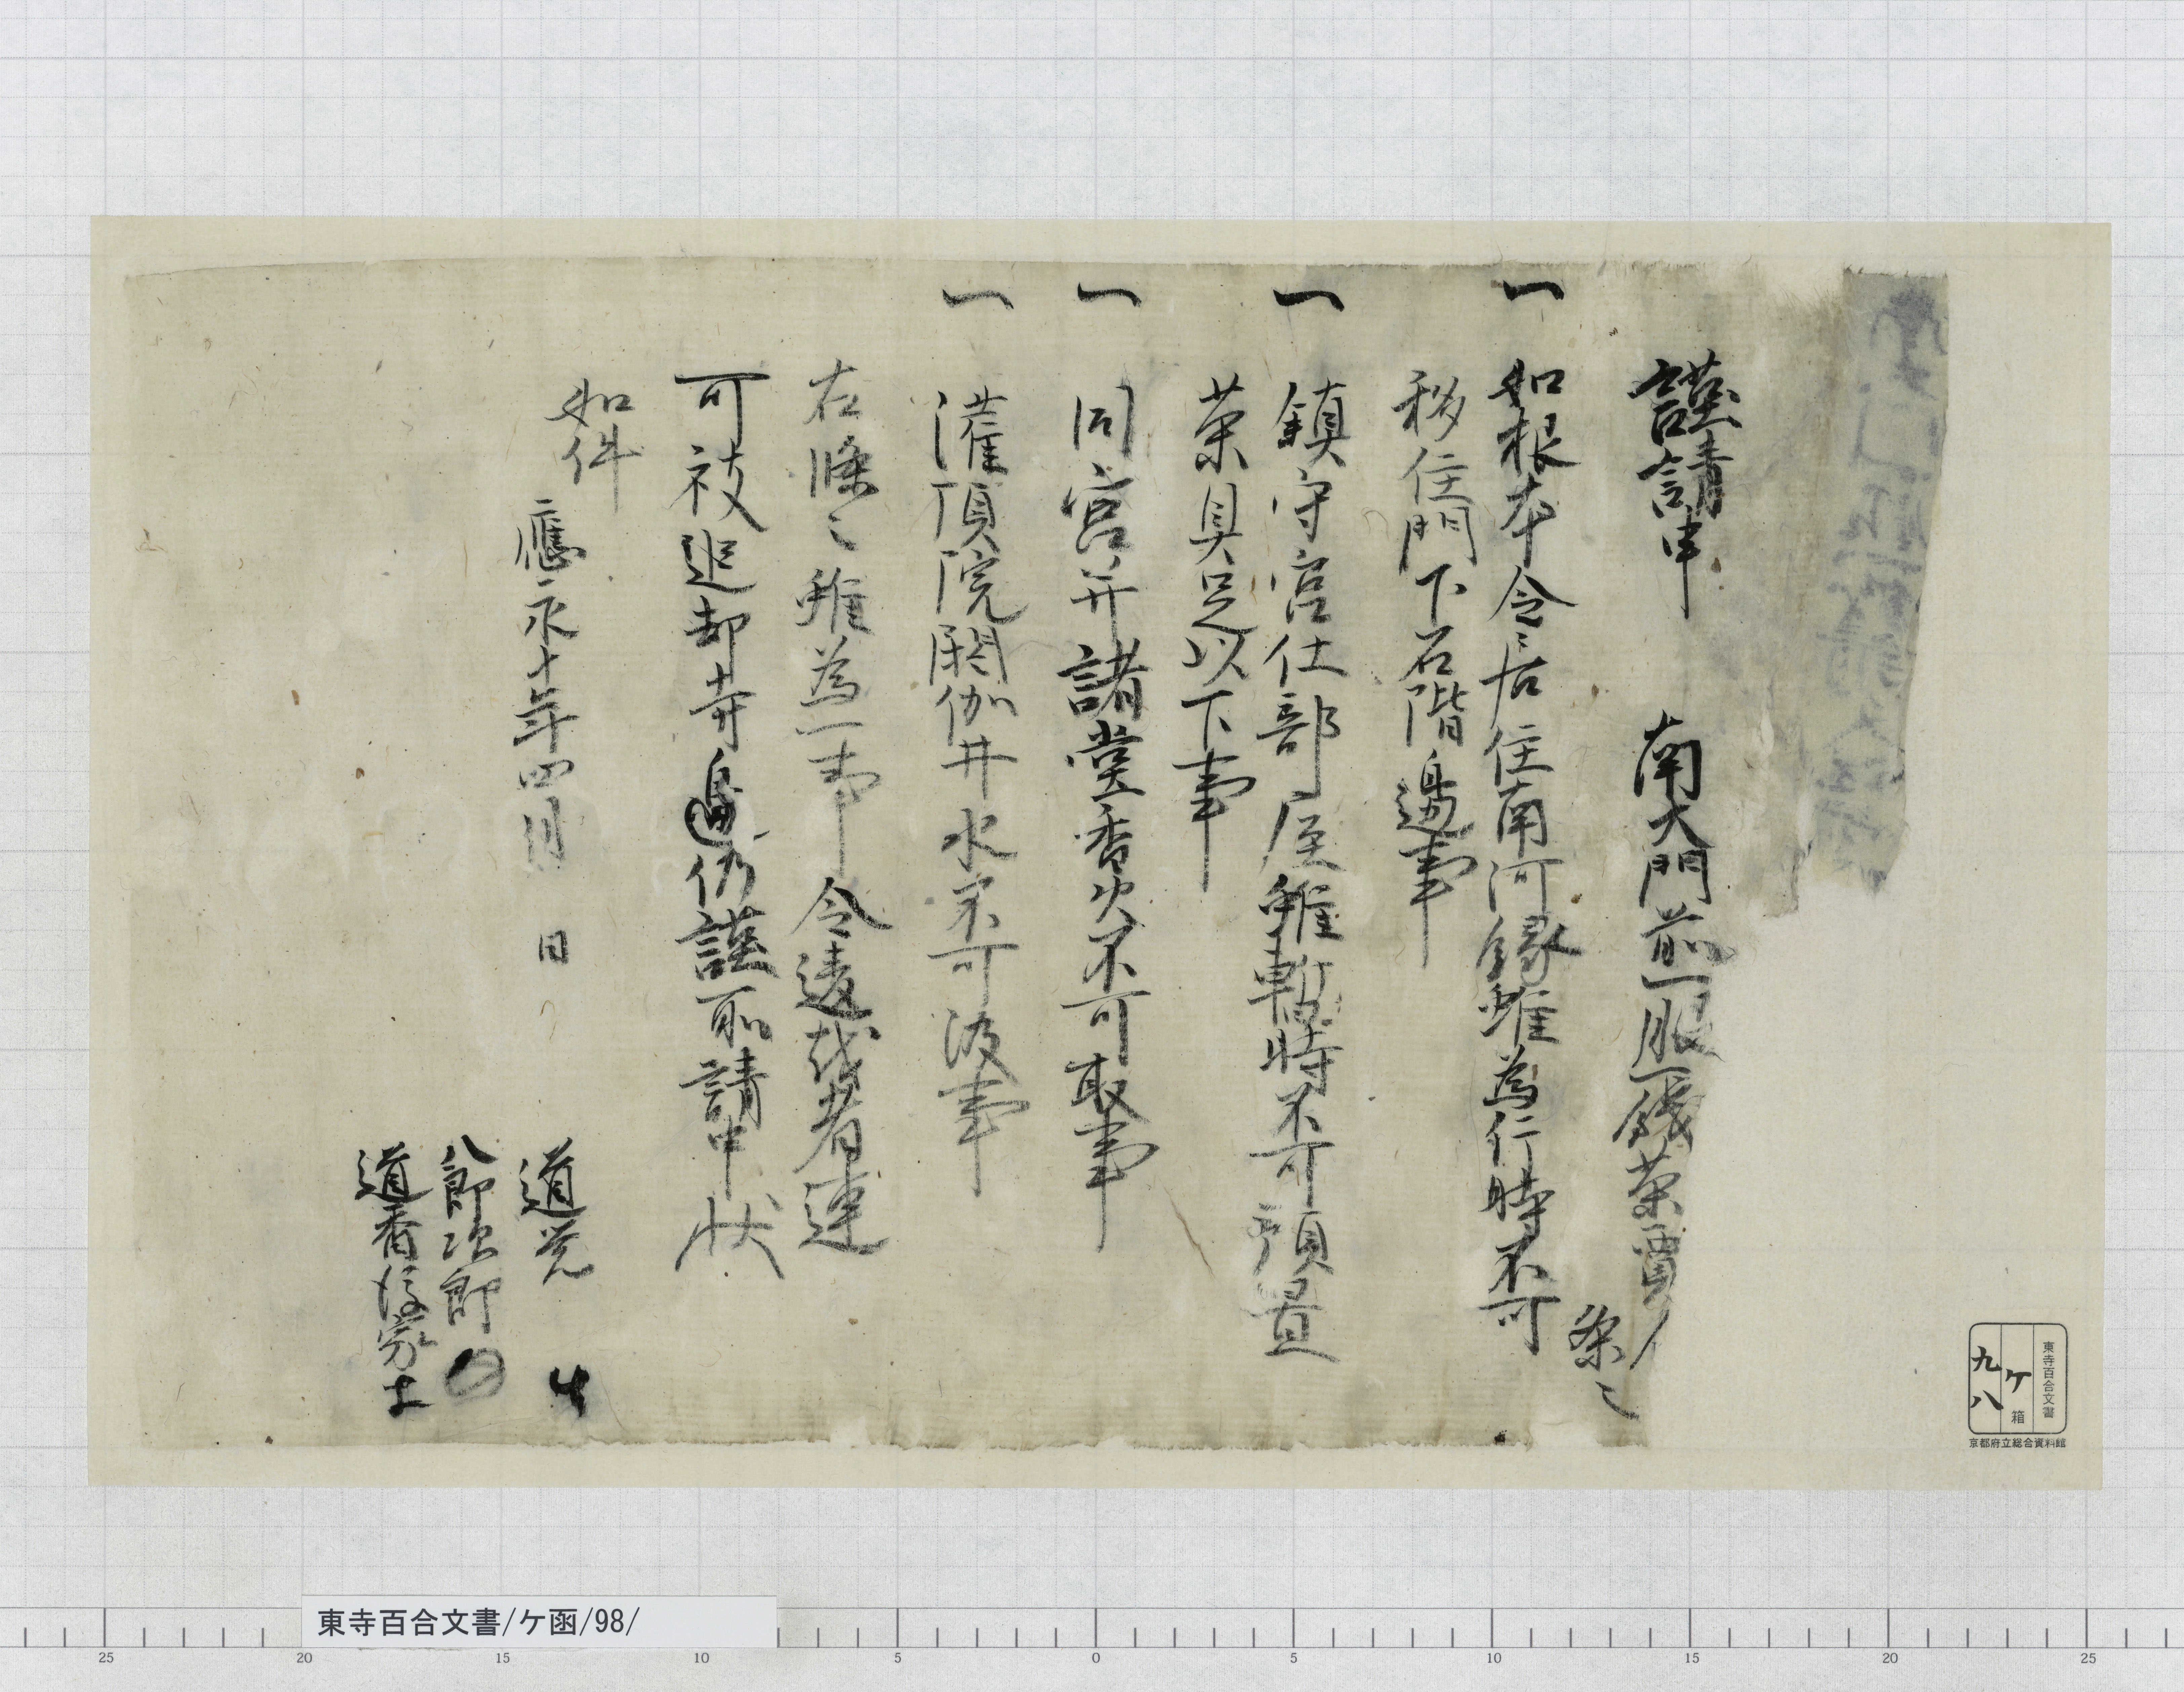 謹請申　南大門前一服一銭茶賣人
条々
一　如根本令居住南河縁雖為片時不可
移住門下石階邊事
一　鎮守宮仕部屋雖暫時不可預置
茶具足以下事
一　同宮并諸堂香火不可取事
一　灌頂院閼伽井水不可汲事
右條々雖為一事令違越者速
可被追却寺邊仍謹所請申状
如件
應永十年四月　日
道覚
八郎次郎
道香後家
東寺百合文書
ケ箱
九八
京都府立総合資料館
東寺百合文書/ケ函/98/
25 20 15 10 5 0 5 10 15 20 25